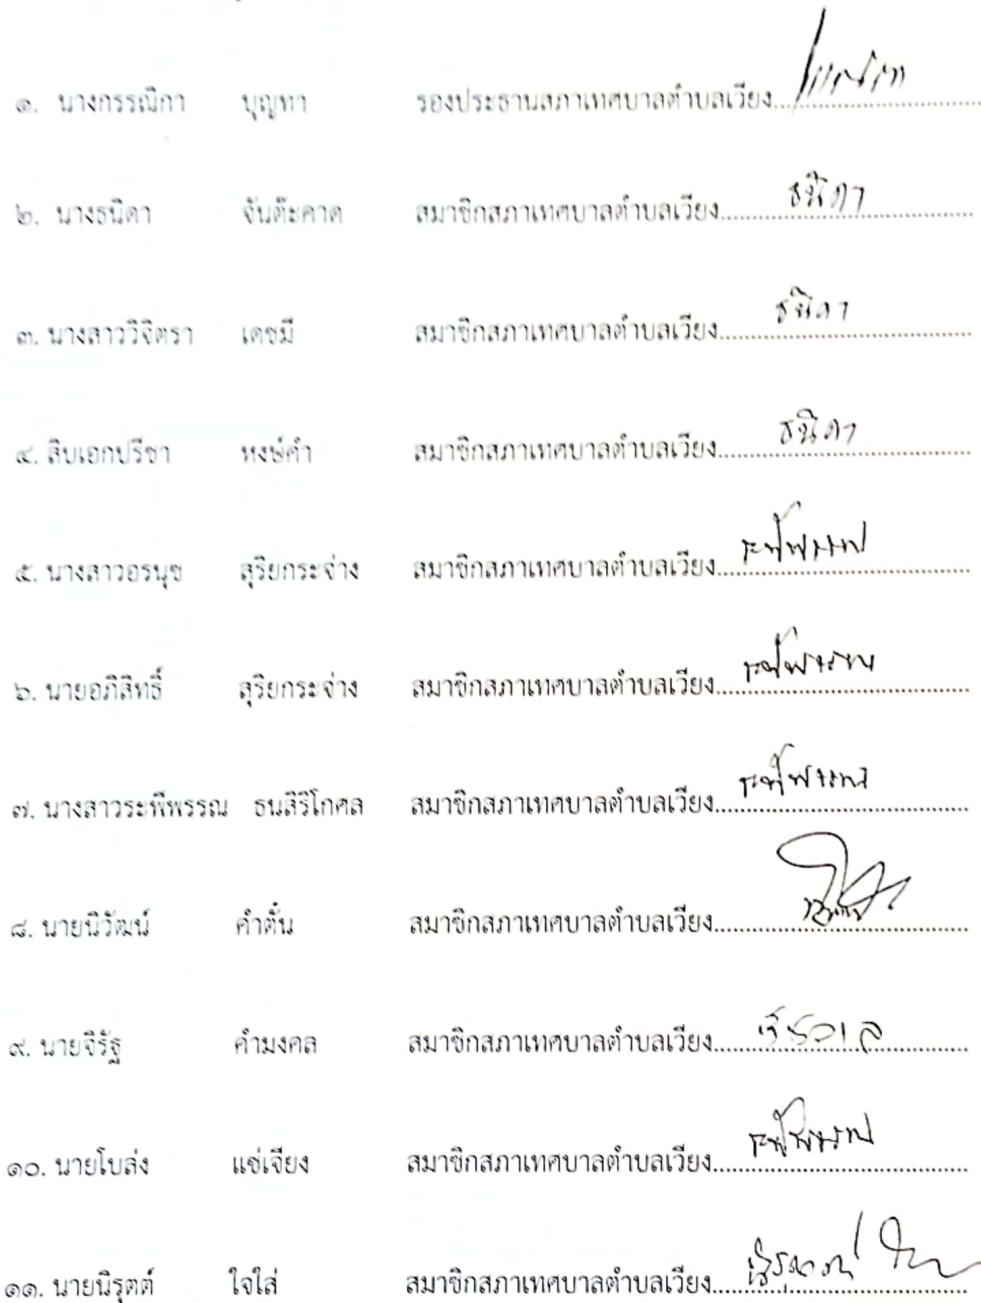 ๑. นางกรรณิกา บุญทา รองประธานสภาเทศบาลตำบลเวียง....
๒. นางธนิดา จันต๊ะคาด สมาชิกสภาเทศบาลตำบลเวียง.... ธนิดา
๓. นางสาววิจิตรา เดชมี สมาชิกสภาเทศบาลตำบลเวียง.... ธนิดา
๔. สิบเอกปรีชา หงษ์คำ สมาชิกสภาเทศบาลตำบลเวียง.... ธนิดา
๕. นางสาวอรนุช สุริยกระจ่าง สมาชิกสภาเทศบาลตำบลเวียง.... ระพีพรรณ
๖. นายอภิสิทธิ์ สุริยกระจ่าง สมาชิกสภาเทศบาลตำบลเวียง.... ระพีพรรณ
๗. นางสาวระพีพรรณ ธนสิริโกศล สมาชิกสภาเทศบาลตำบลเวียง.... ระพีพรรณ
๘. นายนิวัฒน์ คำตั๋น สมาชิกสภาเทศบาลตำบลเวียง....
๙. นายจิรัฐ คำมงคล สมาชิกสภาเทศบาลตำบลเวียง....
๑๐. นายโบล่ง แซ่เจียง สมาชิกสภาเทศบาลตำบลเวียง.... ระพีพรรณ
๑๑. นายนิรุตต์ ใจใส่ สมาชิกสภาเทศบาลตำบลเวียง....